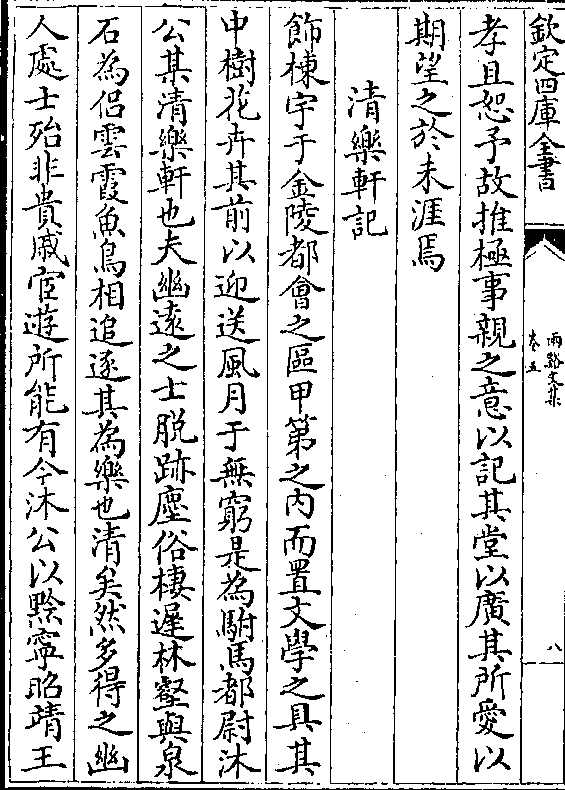 欽定四庫全書
兩谿文集
卷五
八
孝且恕予故推極事親之意以記其堂以廣其所愛以
期望之於未涯焉
清樂軒記
飾棟宇于金陵都會之區甲第之内而置文學之具其
中樹花卉其前以迎送風月于無窮是為駙馬都尉沐
公其清樂軒也夫幽遠之士脱跡塵俗棲遲林壑與泉
石為侣雲霞魚鳥相追逐其為樂也清矣然多得之幽
人處士殆非貴戚宦遊所能有今沐公以黔寧昭靖王